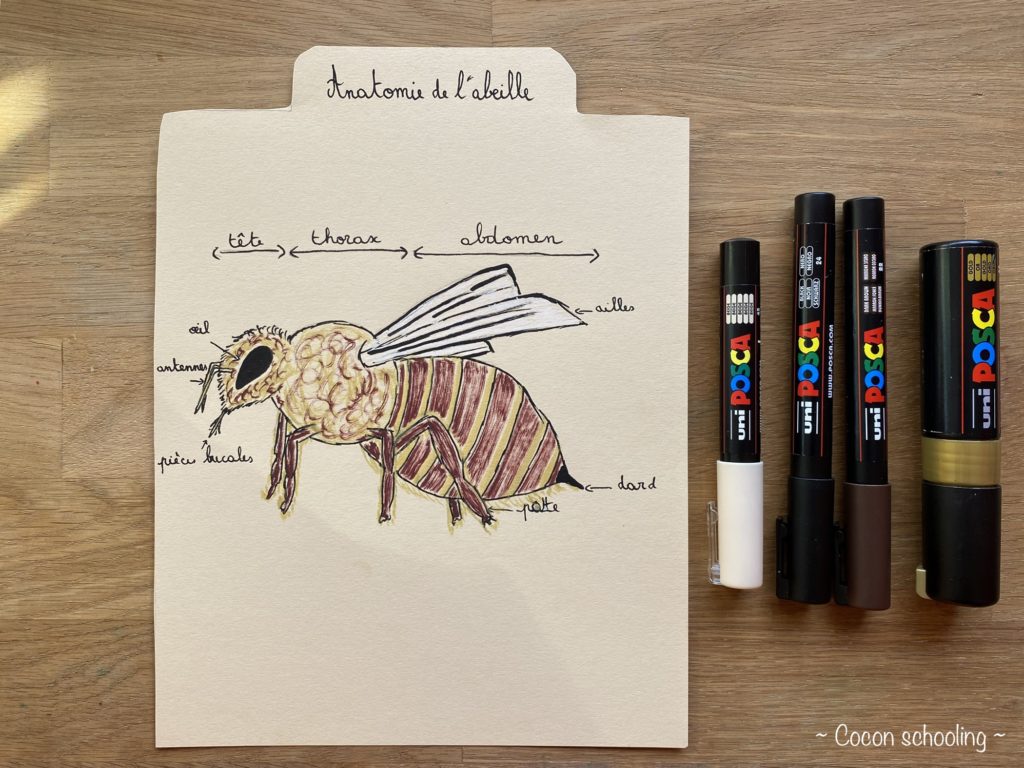 Anatomie de l'abeille
tête thorax abdomen
ailles
œil
antennes
pièces bucales
dard
patte
uni POSCA
uni POSCA
www.POSCA.COM
uni POSCA
uni POSCA
~ Cocon schooling ~